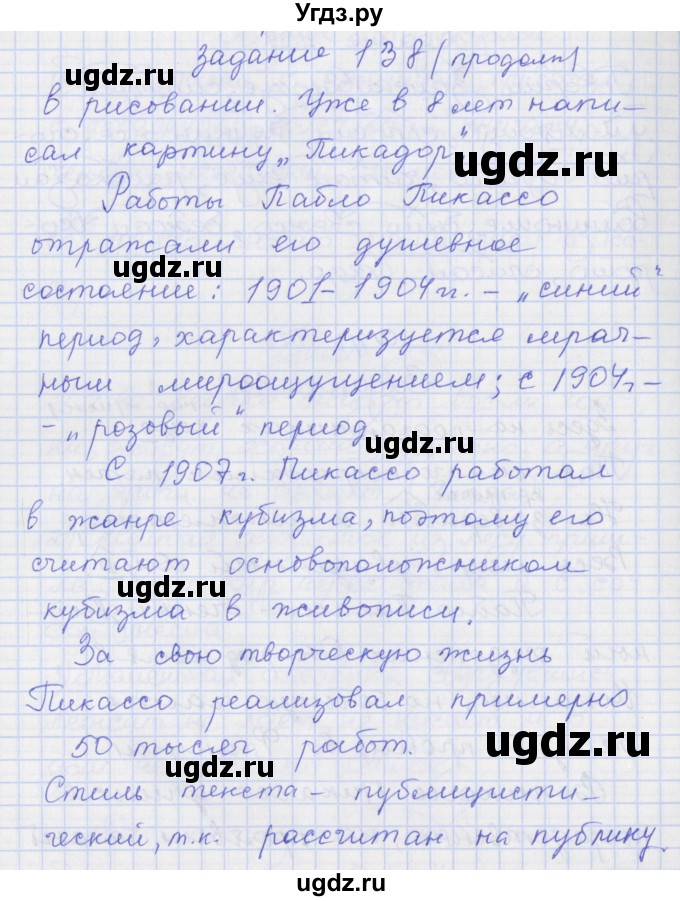 Угдз.ру
Задание 138 (продолж)
в рисовании. Уже в 8 лет напи-
сал картину „Пикадор“
Работы Пабло Пикассо
отражали его душевное
состояние: 1901-1904 гг. - „синий“
период, характеризуется мрач-
ным мироощущением; с 1904г. -
- „розовый“ период
С 1907г. Пикассо работал
в жанре кубизма, поэтому его
считают основоположником
кубизма в живописи.
За свою творческую жизнь
Пикассо реализовал примерно
50 тысяч работ.
Стиль текста - публицисти-
ческий, т.к. рассчитан на публику.
ugdz.ru
ugdz.ru
ugdz.ru
ugdz.ru
ugdz.ru
ugdz.ru
ugdz.ru
ugdz.ru